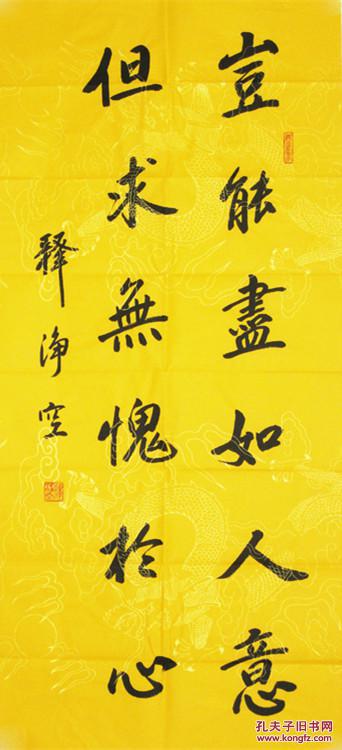 豈能盡如人意
但求無愧於心
釋淨空
孔夫子旧书网
www.kongfz.com